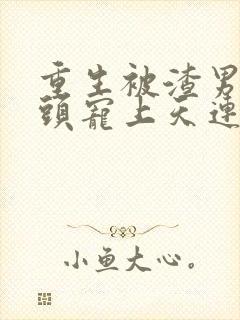 重生被渣男
頭寵上天連
小魚大心。